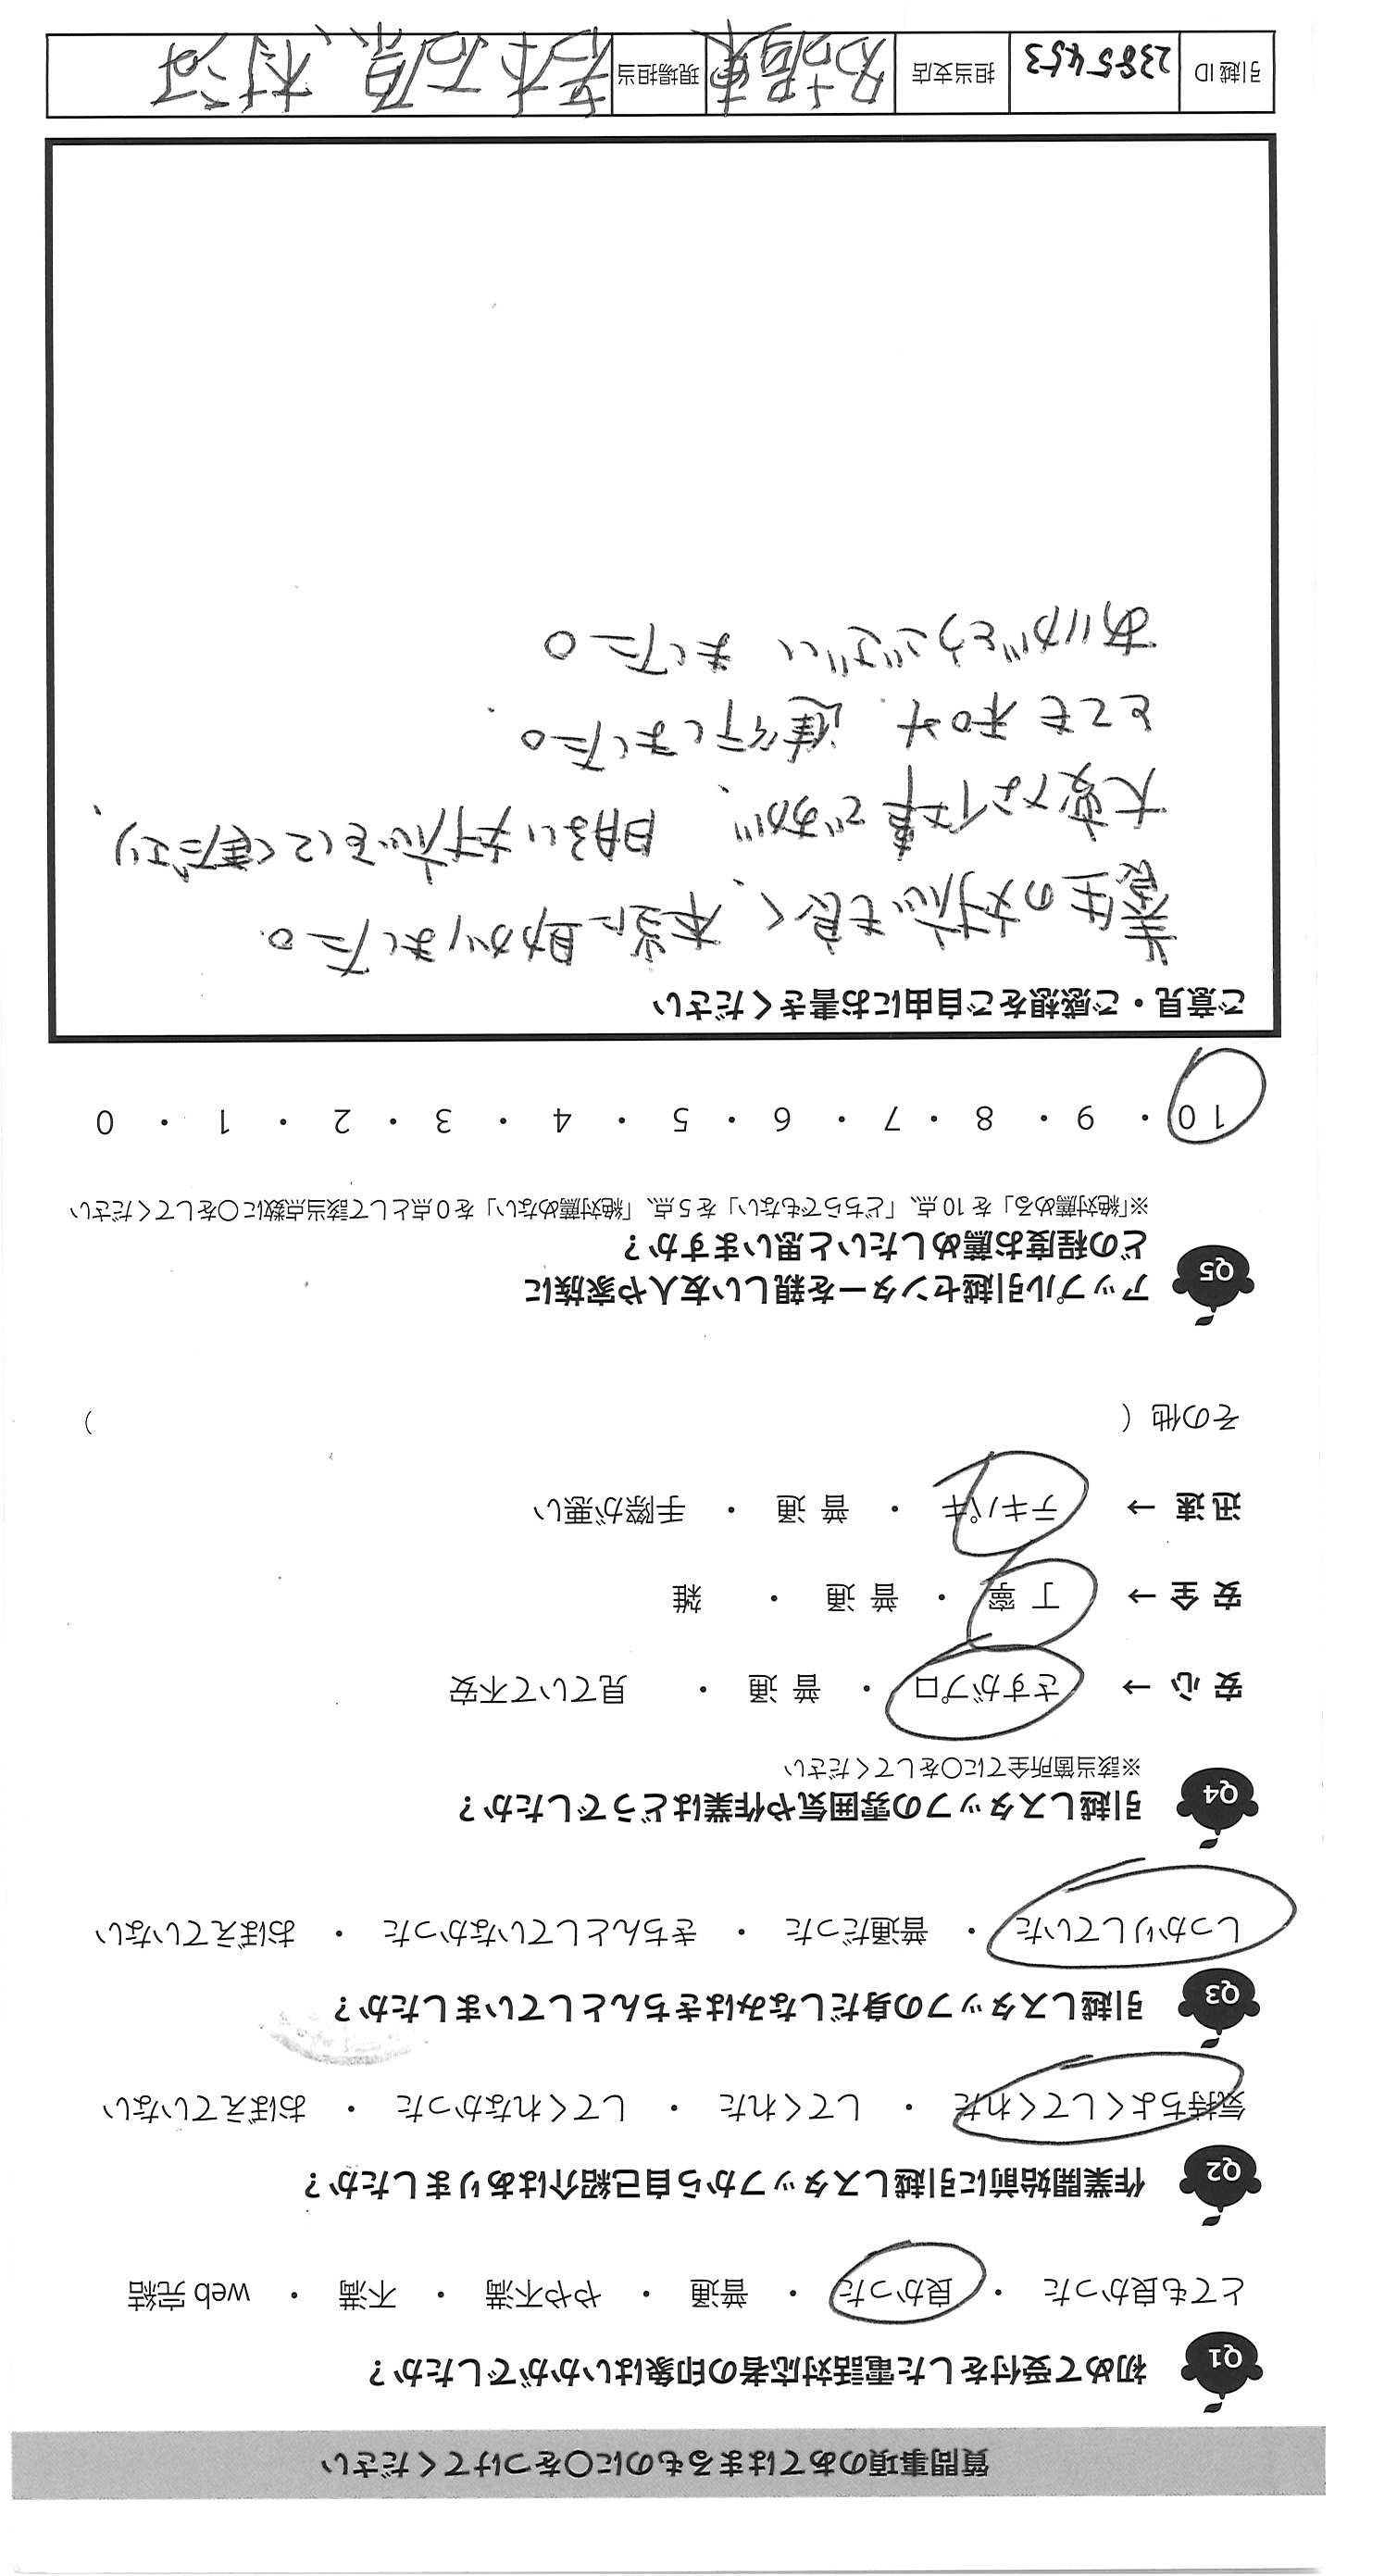 質問事項のあてはまるものに○をつけてください
Q1 初めて受付をした電話対応者の印象はいかがでしたか？
とても良かった ・ 良かった ・ 普通 ・ やや不満 ・ 不満 ・ web 完結
Q2 作業開始前に引越しスタッフから自己紹介はありましたか？
気持ちよくしてくれた ・ してくれた ・ してくれなかった ・ おぼえていない
Q3 引越しスタッフの身だしなみはきちんとしていましたか？
しっかりしていた ・ 普通だった ・ きちんとしていなかった ・ おぼえていない
Q4 引越しスタッフの雰囲気や作業はどうでしたか？
※該当箇所全てに○をしてください
安 心 → さすがプロ ・ 普 通 ・ 見ていて不安
安 全 → 丁 寧 ・ 普 通 ・ 雑
迅 速 → テキパキ ・ 普 通 ・ 手際が悪い
その他（ ）
Q5 アップル引越センターを親しい友人や家族に
どの程度お薦めしたいと思いますか？
※「絶対薦める」を 10 点、「どちらでもない」を 5 点、「絶対薦めない」を 0 点として該当点数に○をしてください
10 ・ 9 ・ 8 ・ 7 ・ 6 ・ 5 ・ 4 ・ 3 ・ 2 ・ 1 ・ 0
ご意見・ご感想をご自由にお書きください
養生の対応も良く、本当に助かりました。
大変な仕事ですが、明るい対応をして下さり、
とても和み 進行しました。
ありがとうございました。
引越ID 2385453 担当支店 名古屋東 現場担当 石原、村河